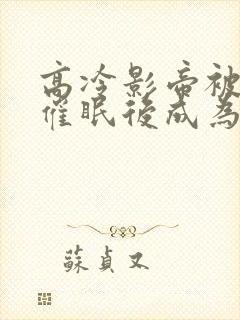 高冷影帝被
催眠後成為
蘇貞又